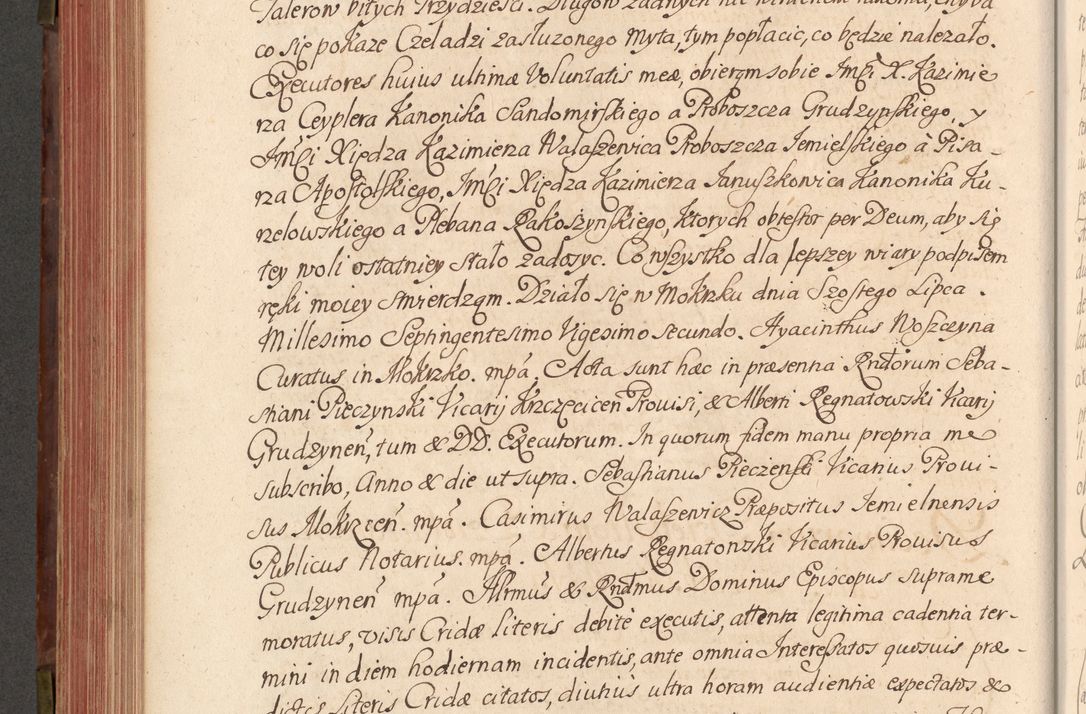 Talerow bitych Trzydziesci. Długow zadnych nie
co się pokaze Czeladzi zasłuzonego Myta, tym popłacic, co będzie nalezało.
Executores huius ultimæ Voluntatis meæ, obieram sobie Jmći X. Kazimie
rza Ceyplera Kanonika Sandomirskiego a Proboszcza Grudzynskiego, y
Jmći Xiędza Kazimierza Walaszewica Proboszcza Jemielskiego à Pisa-
rza Apostolskiego, Jmći Xiędza Kazimierza Januszkowica Kanonika Ku-
rzelowskiego a Plebana Rakoszynskiego, ktorych obtestor per Deum, aby się
tey woli ostatniey stało zadosyc. Co wszystko dla lepszey wiary podpisem
ręki moiey stwierdzam. Działo się w Mokrzku dnia Szostego Lipca.
Millesimo Septingentesimo Vigesimo secundo. Hyacinthus Woszczyna
Curatus in Mokrzko. mpã. Acta sunt hæc in præsentia Rndorum Seba-
stiani Pieczynski Vicarij Krzcęcicen Prouisi, & Alberti Regnatowski Vicarij
Grudzynen, tum & DD. Executorum. In quorum fidem manu propria me
subscribo, Anno & die ut supra. Sebastianus Pieczenski Vicarius Proui-
sus Mokrzcen. mpã. Casimirus Walaszewicz Præpositus Jemielnensis
Publicus Notarius. mpã. Albertus Regnatowski Vicarius Prouisus
Grudzynen mpã. Illrmus & Rndmus Dominus Episcopus supræme
moratus, visis Cridæ literis debitè executis, attenta legitima cadentia ter-
mini in diem hodiernam incidentis, ante omnia Interessatos quosuis præ-
dictis literis Cridæ citatos, diutius ultra horam audientiæ expectatos &